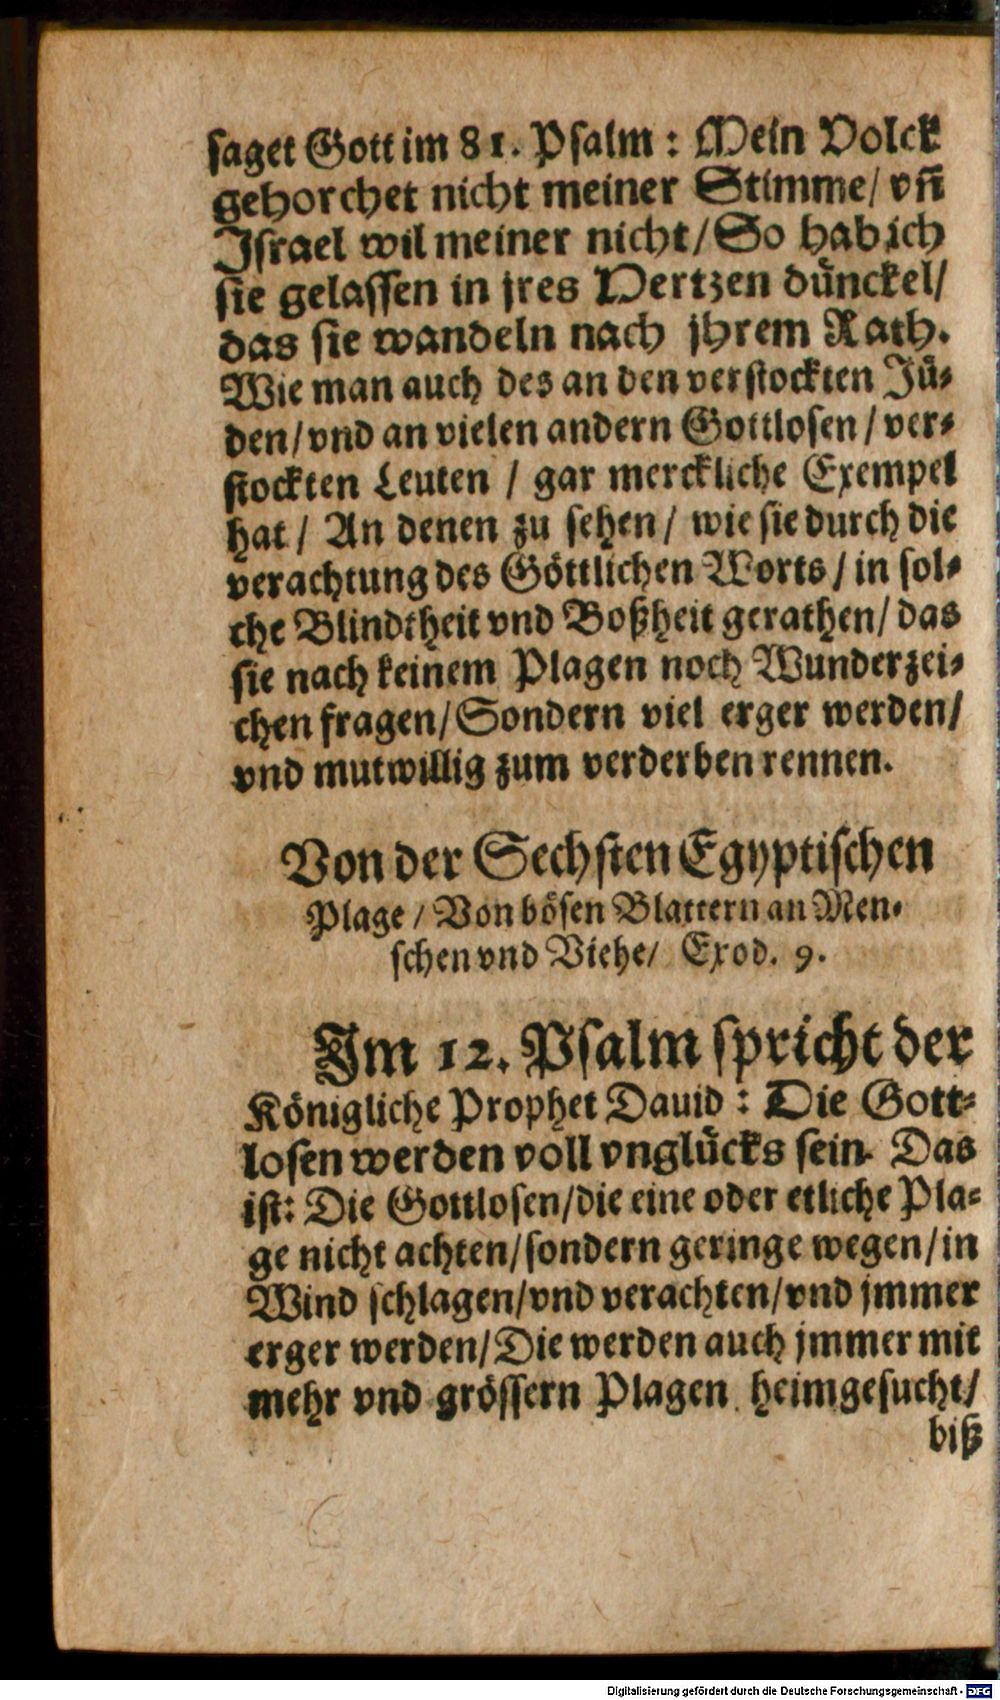 saget Gott im 81. Psalm : Mein Volck
gehorchet nicht meiner Stimme/ vñ
Israel wil meiner nicht/ So hab ich
sie gelassen in jres Hertzen dünckel/
das sie wandeln nach jhrem Rath.
Wie man auch des an den verstockten Jü-
den/ vnd an vielen andern Gottlosen / ver-
stockten Leuten / gar merckliche Exempel
hat / An denen zu sehen / wie sie durch die
verachtung des Göttlichen Worts / in sol-
che Blindtheit vnd Boßheit gerathen/ das
sie nach keinem Plagen noch Wunderzei-
chen fragen/ Sondern viel erger werden/
vnd mutwillig zum verderben rennen.
Von der Sechsten Egyptischen
Plage / Von bösen Blattern an Men-
schen vnd Viehe/ Exod. 9.
Im 12. Psalm spricht der
Königliche Prophet Dauid : Die Gott-
losen werden voll vnglücks sein. Das
ist: Die Gottlosen/ die eine oder etliche Pla-
ge nicht achten/ sondern geringe wegen/ in
Wind schlagen/ vnd verachten/ vnd jmmer
erger werden/ Die werden auch jmmer mit
mehr vnd grössern Plagen heimgesucht/
biß
Digitalisierung gefördert durch die Deutsche Forschungsgemeinschaft - DFG